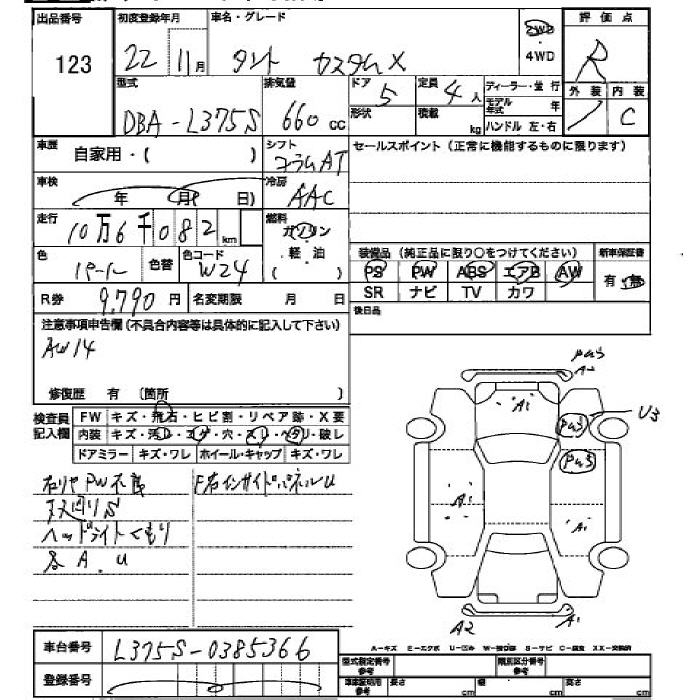 出品番号 初度登録年月 車名・グレード 評価点
123 22年11月 タント カスタムX 2WD ・4WD R
型式 排気量 ドア 定員 ディーラー・並行 外装 内装
DBA-L375S 660cc 5 4人 モデル年式 年 / C
形状 積載 kg ハンドル 左・右
車歴 自家用・( ) シフト コラムAT セールスポイント(正常に機能するものに限ります)
車検 年 月 日) 冷房 AAC
走行 10万6千082km 燃料 ガソリン ・軽油 ( )
色 パール 色替 色コード W24 装備品(純正品に限り○をつけてください) 新車保証書
PS PW ABS エアB AW 有・無
R券 9,790円 名変期限 月 日 SR ナビ TV カワ
注意事項申告欄(不具合内容等は具体的に記入して下さい) 後日品
AW14
修復歴 有 〔箇所 〕
検査員記入欄 FW キズ・飛石・ヒビ割・リペア跡・X要
内装 キズ・汚れ・コゲ・穴・スレ・ヘタリ・破レ
ドアミラー キズ・ワレ ホイール・キャップ キズ・ワレ
右リヤPW不良 F右インサイドパネルU
ヌメ回りS
ヘッドライトくもり
各A.U
Pa3
A2
A1 U3
Pa3
Pa3
A1 A1
A2 A1
A-キズ E-エクボ U-凹み W-補修跡 S-サビ C-腐食 XX-交換済
車台番号 L375S-0385366 型式指定番号 参考 類別区分番号 参考
登録番号 車庫証明用 参考 長さ cm 幅 cm 高さ cm